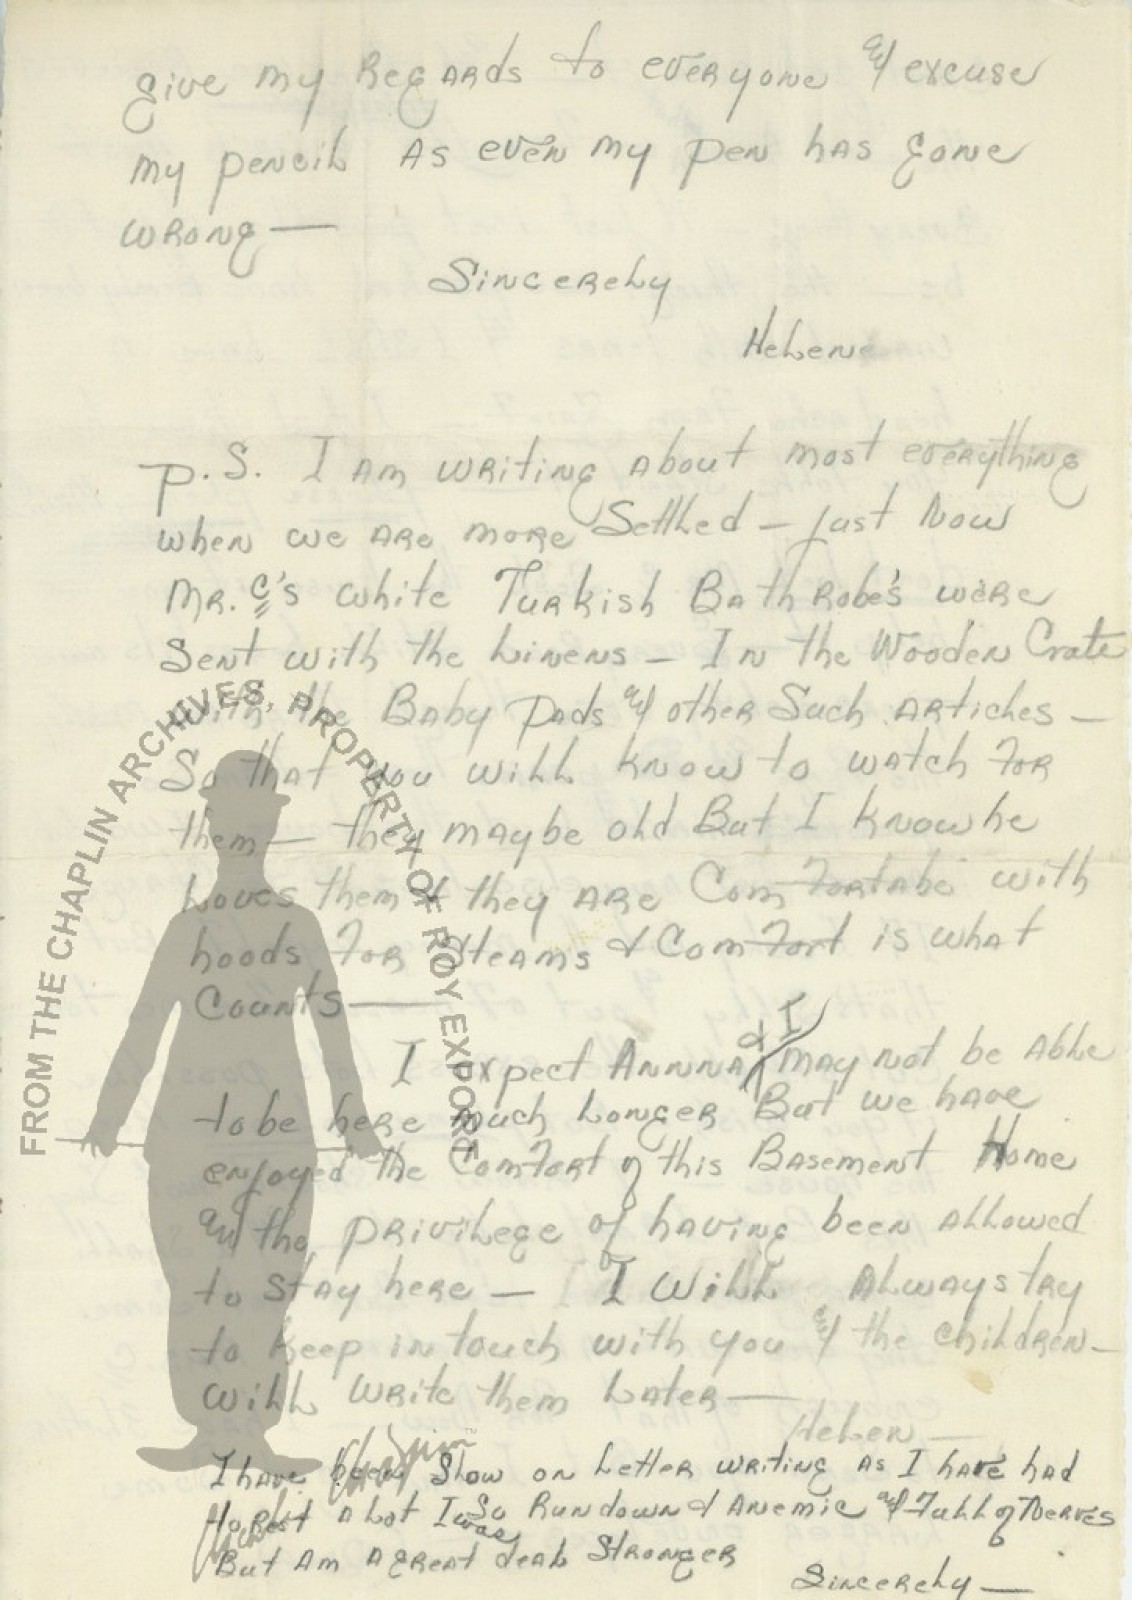 give my Regards to everyone & excuse
my pencil As even my pen has gone
wrong —
Sincerely
Helene
P.S. I am writing about most everything
when we are more Settled — just Now
Mr. C's white Turkish Bathrobe's were
Sent with the Linens — In the Wooden Crate
with the Baby Pads & other Such Articles —
So that you will know to watch for
them — they maybe old But I know he
Loves them & they are Comfortabe with
hoods for Steams & Comfort is what
Counts —
I expect Annna & I may not be able
to be here much Longer But we have
enjoyed the Comfort of this Basement Home
and the privilege of having been allowed
to Stay here — I will Always try
to keep in touch with you & the children —
will write them Later —
Helen —
I have been Slow on Letter writing as I have had
to Rest a Lot I was So Rundown & Anemic & Full of Nerves
But Am a great deal Stronger
Sincerely —
FROM THE CHAPLIN ARCHIVES, PROPERTY OF ROY EXPORT